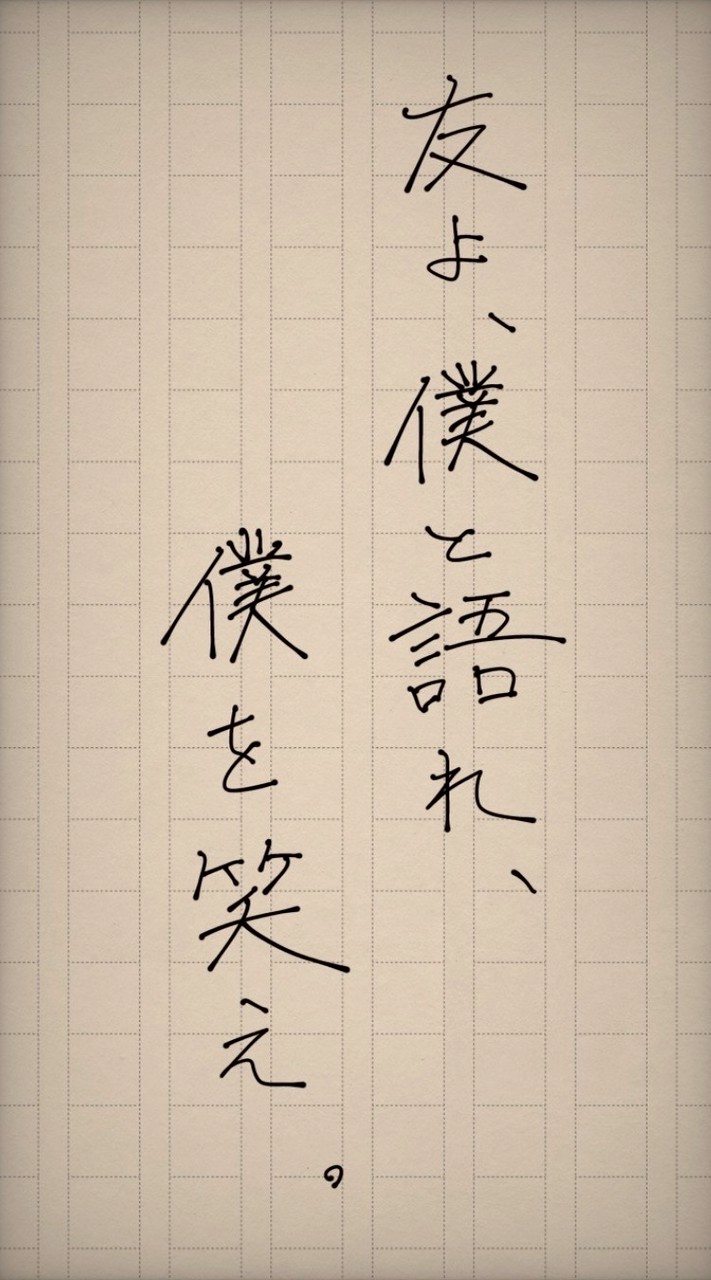 友よ、僕と語れ、
僕を笑え。